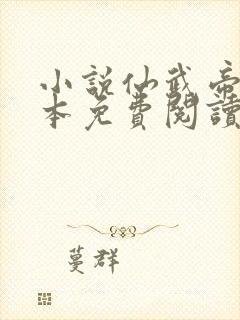 小說仙武帝
本免費閱讀
蔓群